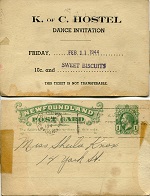 K. OF C. HOSTEL
DANCE INVITATION
FRIDAY, FEB 11 1944
10c. and SWEET BISCUITS
THIS TICKET IS NOT TRANSFERABLE.
NEWFOUNDLAND
POST CARD
Miss Sheila Knox
18 York St.